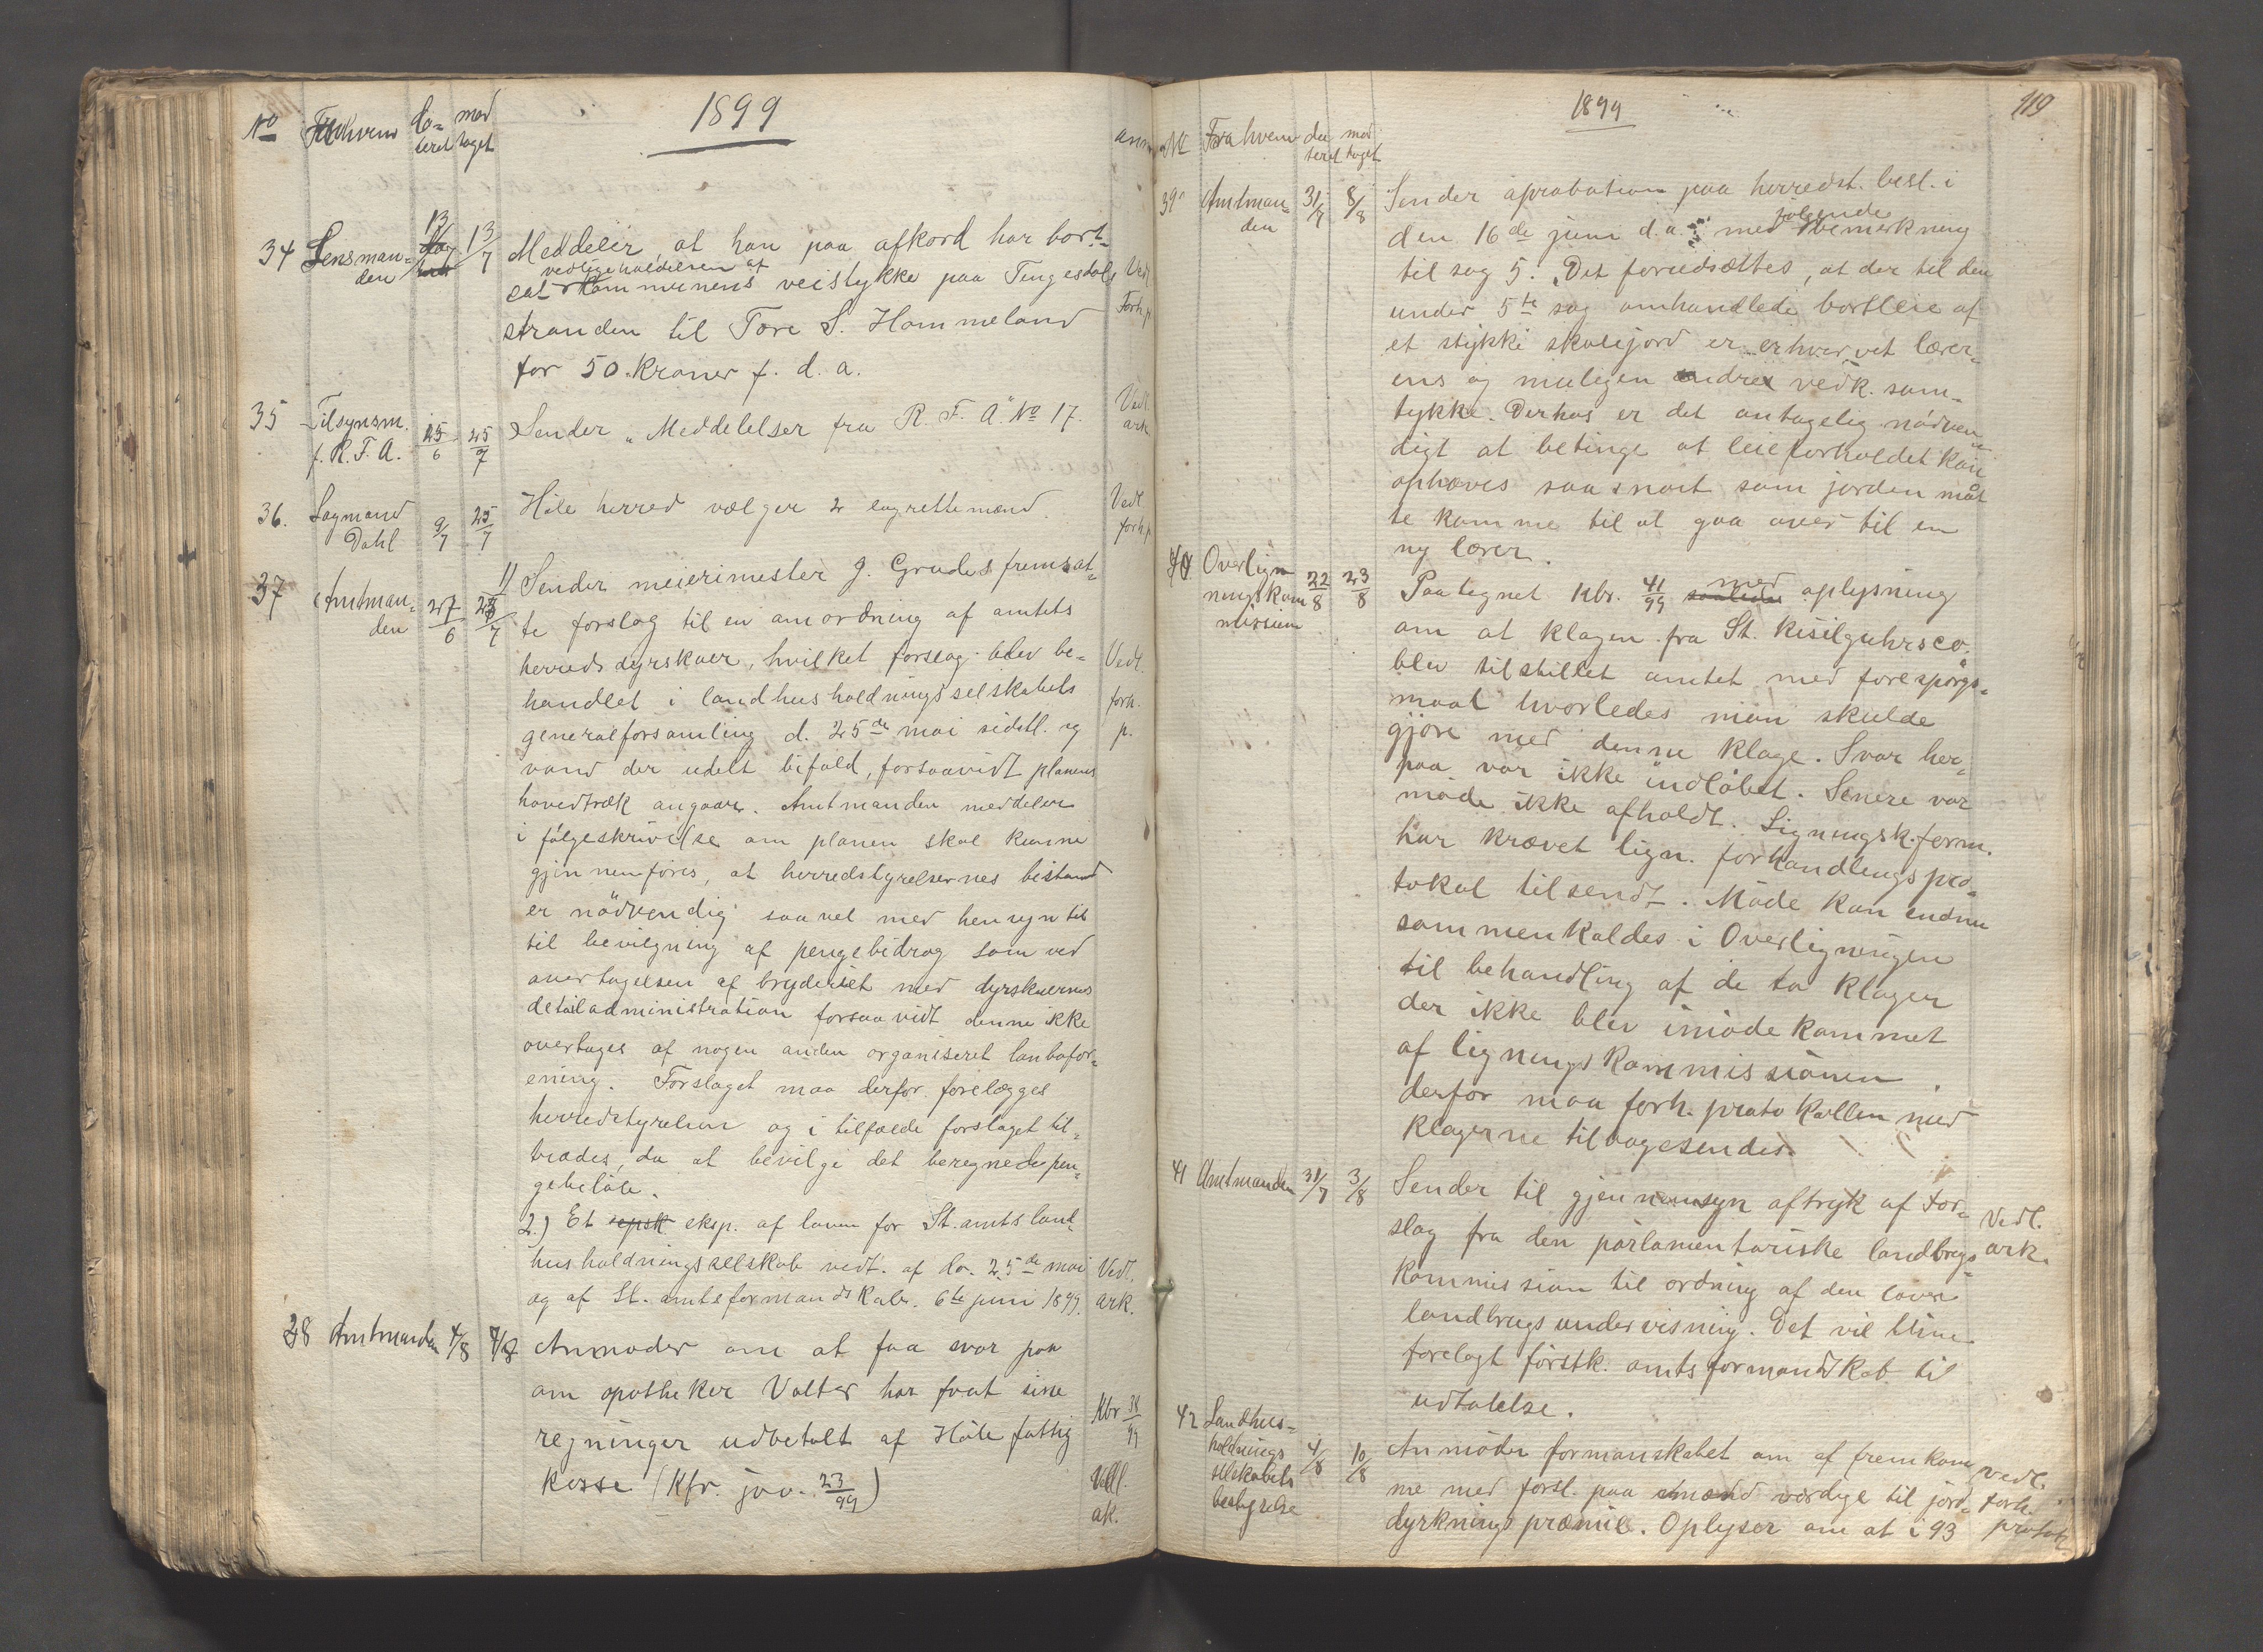 1899
No Fra hvem da= mod
teret taget anm
34 Lensman= 13/7 13/7 Meddeler at han paa afkord har bort=
den vedligeholdelsen af
sat kommunens veistykke paa Tengesdals Vedl.
stranden til Tore S. Hommeland Forh.p.
for 50 kroner f. d. a.
35 Tilsynsm. 25/6 25/7 Sender „Meddelelser fra R. F. A." No 17. Vedl.
f. R. F. A. ark.
36. Lagmand 9/7 25/7 Høle herred vælger 2 lagrettemænd. Vedl.
Dahl forh.p.
37 Amtman= 27/6 25/7 1) Sender meierimester J. Grudes fremsat=
den te forslag til en anordning af amtets
herredsdyrskuer, hvilket forslag blev be= Vedl.
handlet i landhusholdningsselskabets forh.
generalforsamling d. 25de mai sidstl. og p.
vand der udelt bifald, forsaavidt planens
hovedtræk angaar. Amtmanden meddeler
i følgeskrivelse om planen skal kunne
gjennemføres, at herredstyrelsernes bistand
er nødvendig saavel med hensyn til
til bevilgning af pengebidrag som ved
overtagelsen af bryderiet med dyrskuernes
detailadministration forsaavidt denne ikke
overtages af nogen anden organiseret lanbofor=
ening. Forslaget maa derfor forelægges
herredstyrelsen og i tilfælde forslaget til=
trædes, da at bevilge det beregnede pen=
gebeløb.
2.) Et eksp. af loven for St. amts land=
husholdningsselskab vedt. af do. 25de mai Vedl.
og af St. amtsformandskab. 6te juni 1899. ark.
38 Amtmanden 4/8 7/8 Anmoder om at faa svar paa
om apotheker Valter har faat sine
regninger udbetalt af Høle fattig Kbr 38/99
kasse (Kfr. jov. 23/99) Vedl.
ak.
1899 119
No Fra hvem da mod
teret taget
39 Amtman= 31/7 8/8 Sender aprobation paa herredst. besl. i
den følgende
den 16de juni d.a. med bemerkning
til sag 5. „Det forudsættes, at der til den
under 5te sag omhandlede bortleie af
et stykke skolejord er erhvervet lærer=
ens og muligen andres vedk. sam=
tykke. Derhos er det antagelig nødven=
digt at betinge at leieforholdet kan
ophæves saa snart som jorden maat
te komme til at gaa over til en
ny lærer.
40 Overlign 22/8 23/8 Paategnet kbr. 41/99 med oplysning
ningskom
mission
om at klagen fra St. Kisilguhrsco.
blev tilstillet amtet med forespørgs=
maal hvorledes man skulde
gjøre med denne klage. Svar her=
paa var ikke indløbet. Senere var
møde ikke afholdt. Ligningsk.form.
har krævet lign. forhandlingspro=
tokol tilsendt. Møde kan endnu
sammenkaldes i Overligningen
til behandling af de to klager
der ikke blev imødekommet
af ligningskommissionen.
derfor maa forh. protokollen med
klagerne tilbagesendes.
41 Amtmanden 31/7 3/8 Sender til gjennemsyn aftryk af For= Vedl.
slag fra den parlamentariske landbrugs ark.
kommission til ordning af den lavere
landbrugsundervisning. Det vil blive
forelagt førstk. amtsformandskab til
udtalelse.
42 Landhus= 4/8 10/8 Anmoder formanskabet om af fremkom Vedl.
holdnings
selskabets me med forsl. paa mænd værdige til jord= forh.
bestyrelse dyrkningspræmie. Oplyser om at i 93 protok.